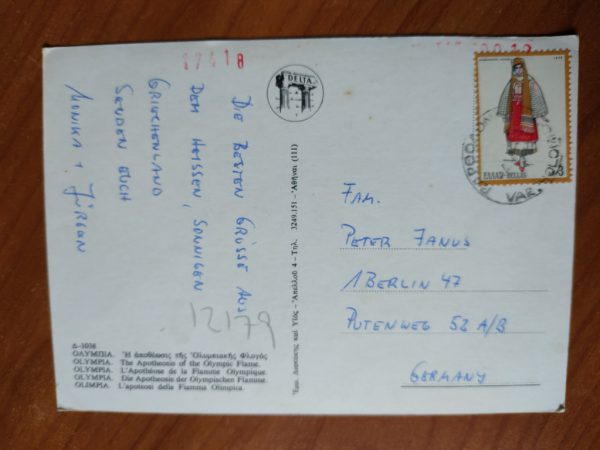 87418
DELTA
DIE BESTEN GRÜSSE AUS
DEM HEISSEN, SONNIGEN
GRIECHENLAND
SENDEN EUCH
MONIKA + JÜRGEN
12179
Δ-1036
ΟΛΥΜΠΙΑ. Ἡ ἀποθέωσις τῆς Ὀλυμπιακῆς Φλογός
OLYMPIA. The Apotheosis of the Olympic Flame.
OLYMPIA. L'Apothéose de la Flamme Olympique.
OLYMPIA. Die Apotheosis der Olympischen Flamme.
OLIMPIA. L'apoteosi della Fiamma Olimpica.
Ἀπελλοῦ 4 – Τηλ. 3249.151 – Ἀθῆναι (111)
ΕΛΛΑΣ-HELLAS
VAR.
FAM.
PETER JANUS
1 BERLIN 47
PUTENWEG 52 A/B
GERMANY